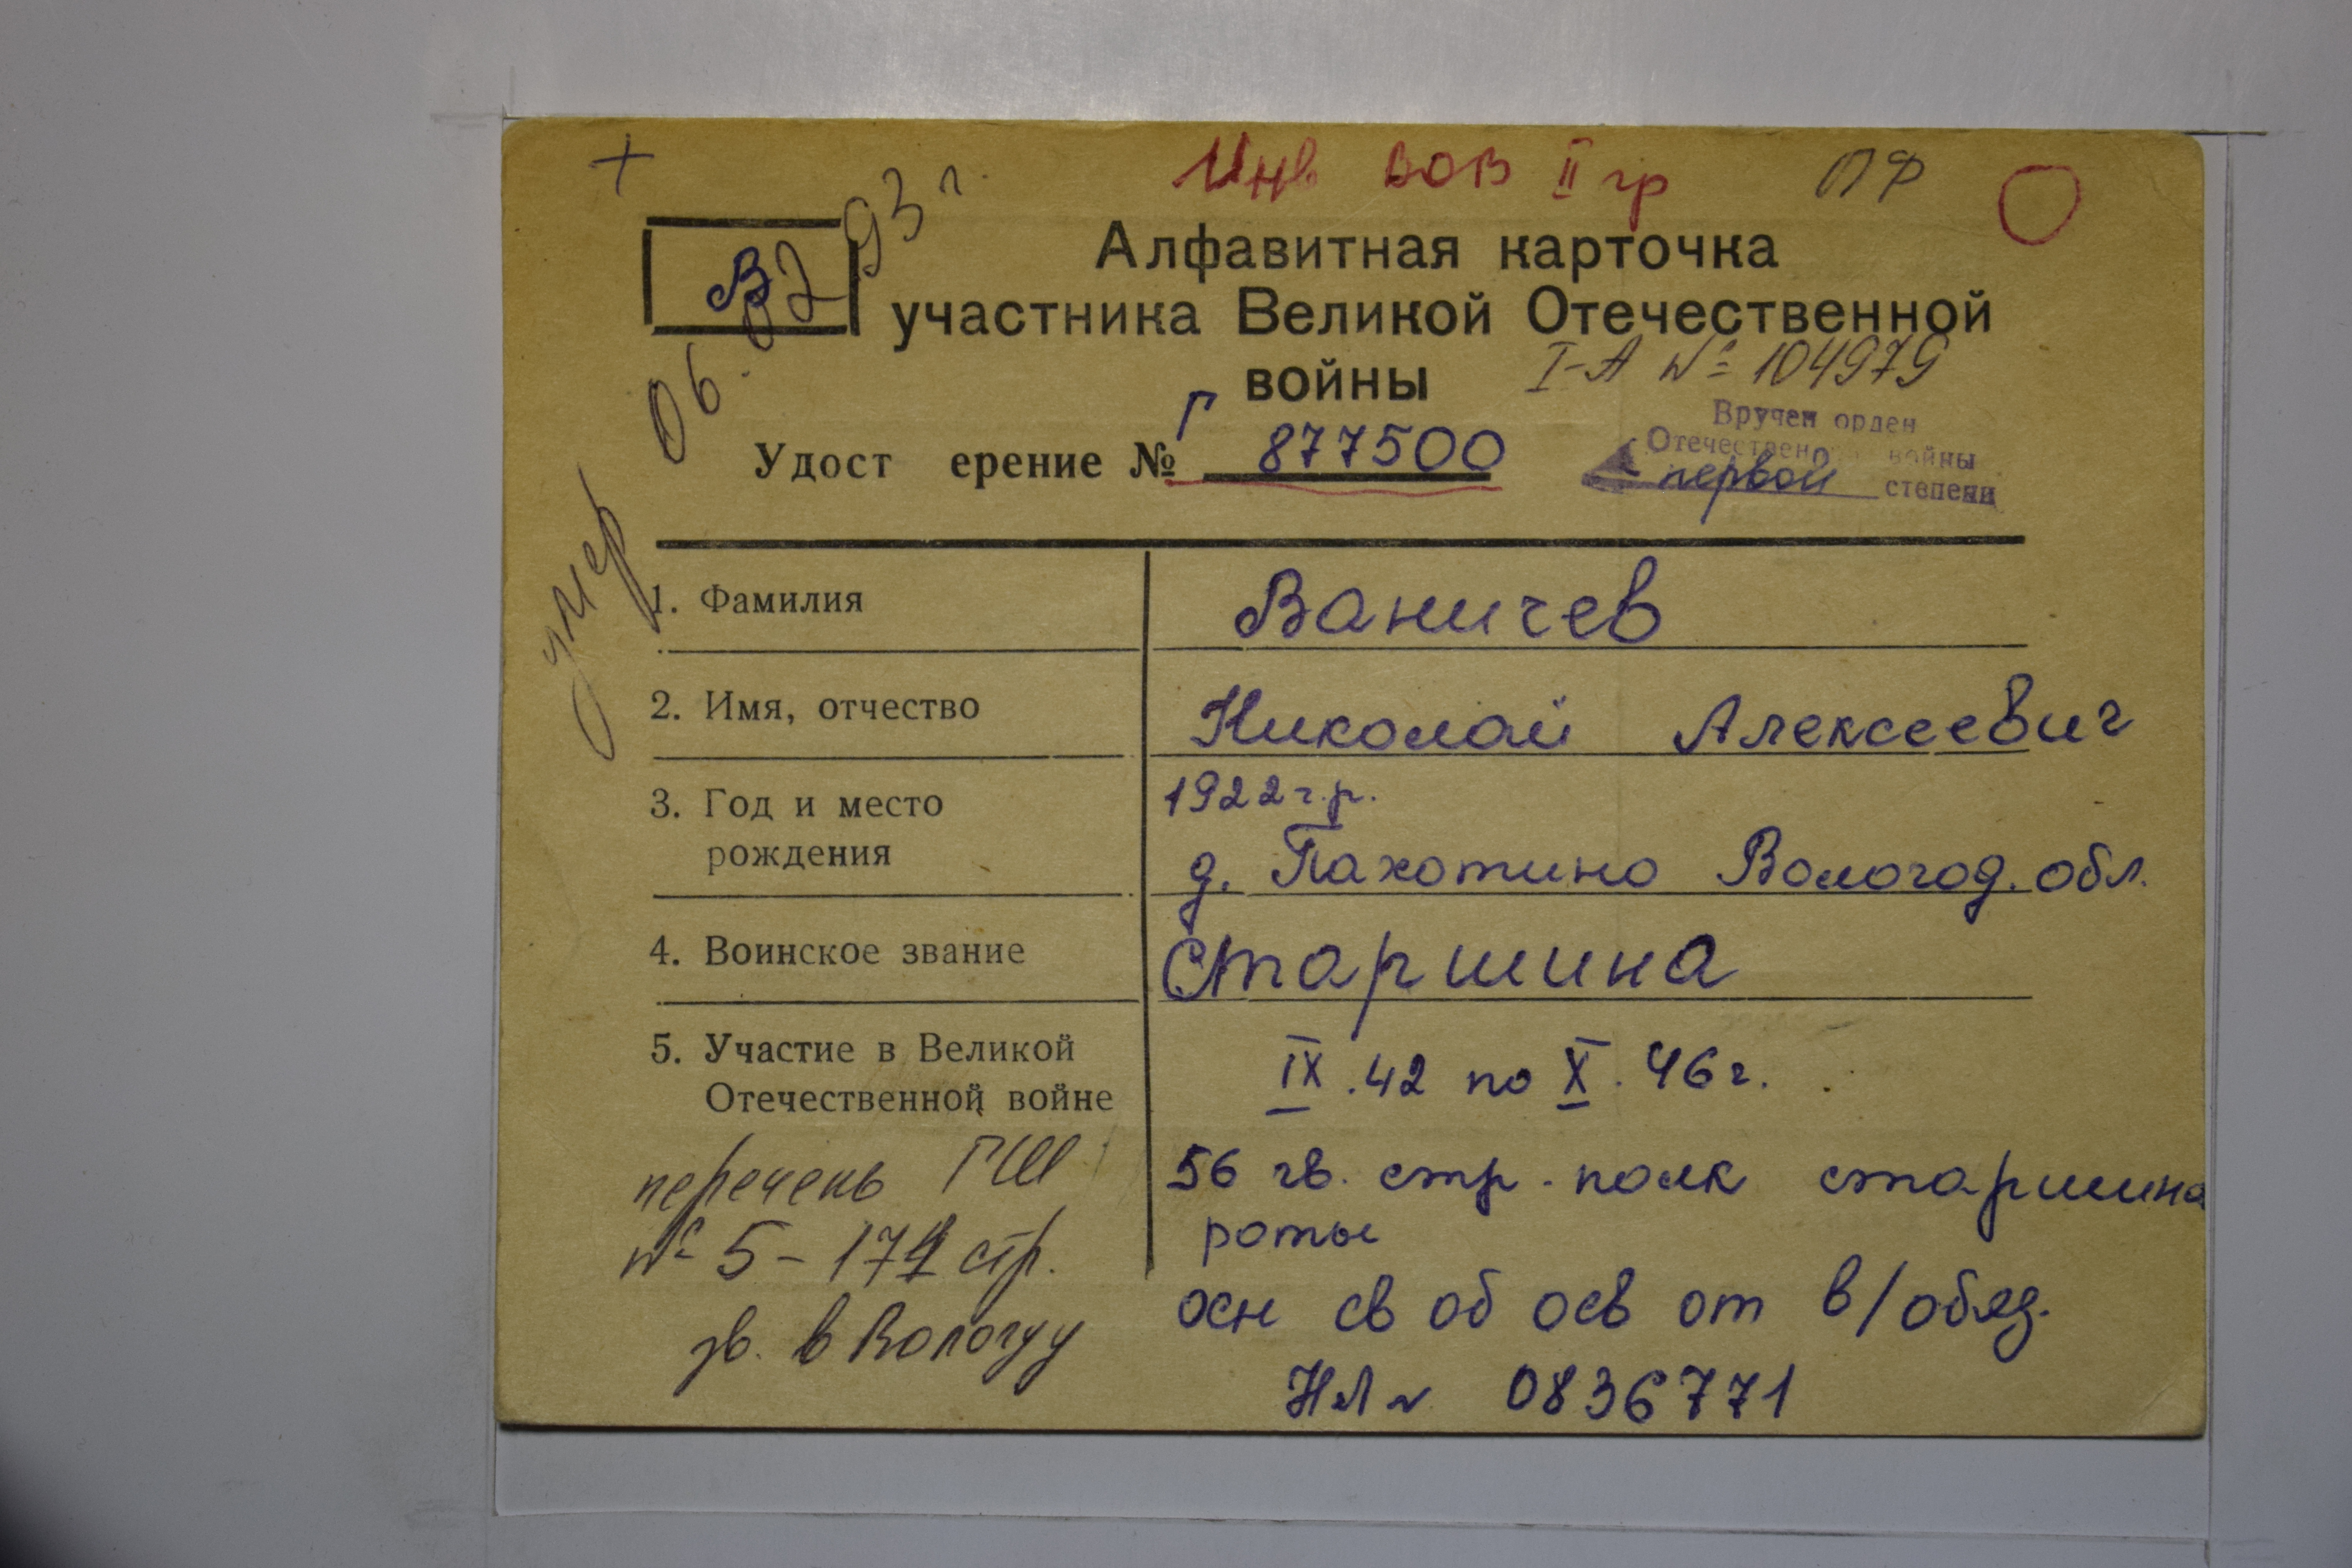 +
Инв ВОВ II гр ПФ
В
умер 06.02 93 г.
Алфавитная карточка
участника Великой Отечественной
войны
I-А № 104979
Удост ерение № Г 877500
Вручен орден
Отечественной войны
первой степени
1. Фамилия Ваничев
2. Имя, отчество Николай Алексеевич
3. Год и место 1922 г.р.
рождения д. Пахотино Вологод. обл.
4. Воинское звание Старшина
5. Участие в Великой IX.42 по X.46 г.
Отечественной войне
56 гв. стр. полк старшина
роты
осн св об осв от в/обяз.
НЛ № 0836771
перечень ГШ
№ 5 - стр.
в Вологду